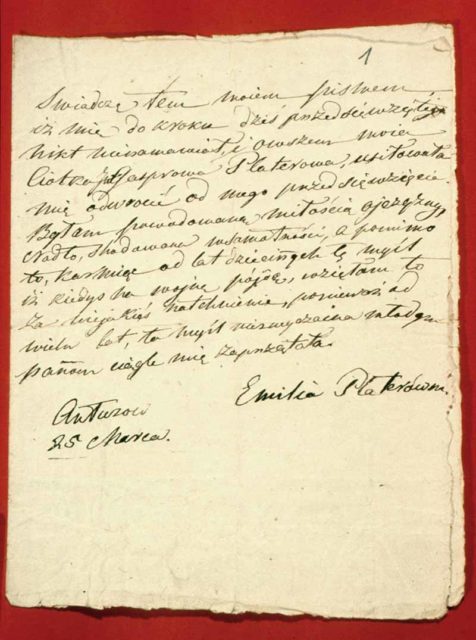 1
Świadczę tem moiem pismem,
iż mię do kroku dziś przedsięwziętego
nikt nienamawiał, i owszem moia
Ciotka Platerowa, usiłowała
mię odwrócić od mego przedsięwzięcia.
Byłam powodowana miłością ojczyzny,
a pomimo
to, karmiąc od lat dziecinnych tę myśl
iż kiedyś na wojnę pójdę, wzięłam to
za niejakieś natchnienie, ponieważ od
wielu lat, ta myśl niezwyczaina młodym
pannom ciągle mię zaprzątała.
Emilia Platerówna.
Antuzow
25 Marca.